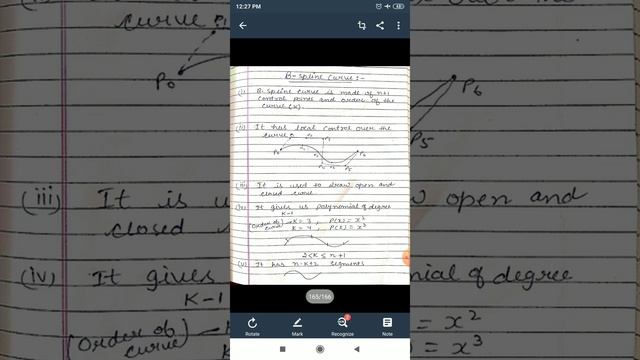 12:27 PM
B-Spline Curve:-
(i) B-spline curve is made of n+1
control points and order of the
curve (K).
(ii) It has local control over the
curve
P0
P6
(iii) It is used to draw open and
closed curve
(iv) It gives us polynomial of degree
K-1
(Order of curve) K = 3, P(x) = x²
K = 4, P(x) = x³
2 ≤ K ≤ n+1
(v) It has n-K+2 segments
165/166
Rotate
Mark
Recognize
Note
curve
P0
P6
P5
(iii) It is u
w open and
closed
(iv) It gives
mial of degree
K-1
(Order of
curve)
= x²
= x³